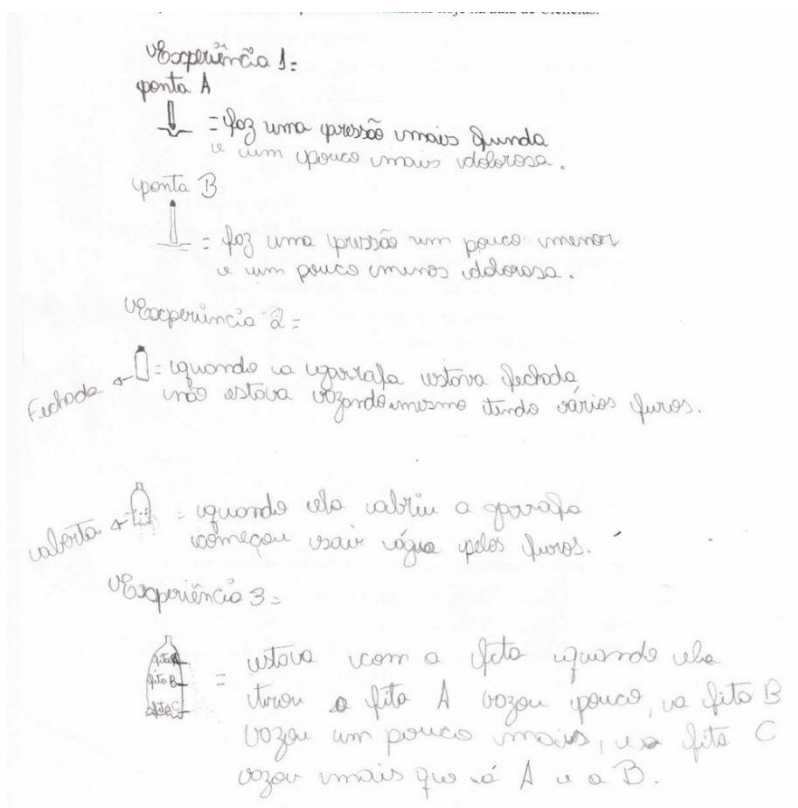 hoje na aula de Ciências.
Experiência 1=
ponta A
= foz uma pressão mais funda
e um pouco mais dolorosa.
ponta B
= foz uma pressão um pouco menor
e um pouco menos dolorosa.
Experiência 2=
Fechada
= quando a garrafa estava fechada
não estava vazando mesmo tendo vários furos.
aberta
= quando ela abriu a garrafa
começou sair água pelos furos.
Experiência 3=
fita A
fita B
fita C
= estava com a fita quando ela
tirou a fita A vazou pouco, a fita B
vazou um pouco mais, e a fita C
vazou mais que só A e a B.